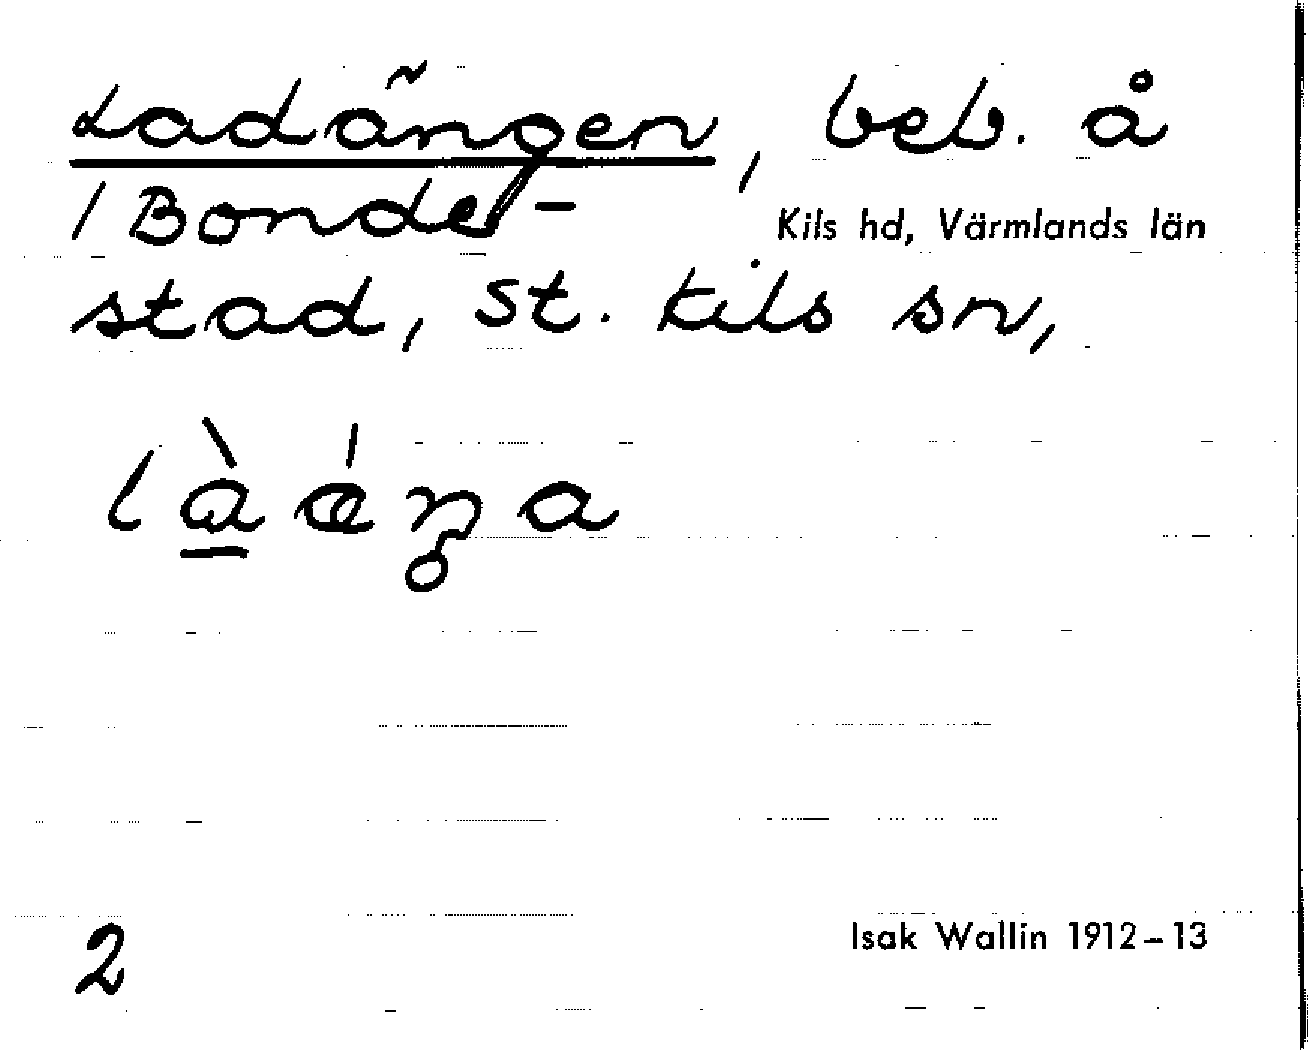 Ladängen, beb. å
1 Bonde-
Kils hd, Värmlands län
stad, St. Kils sn,
2
Isak Wallin 1912–13